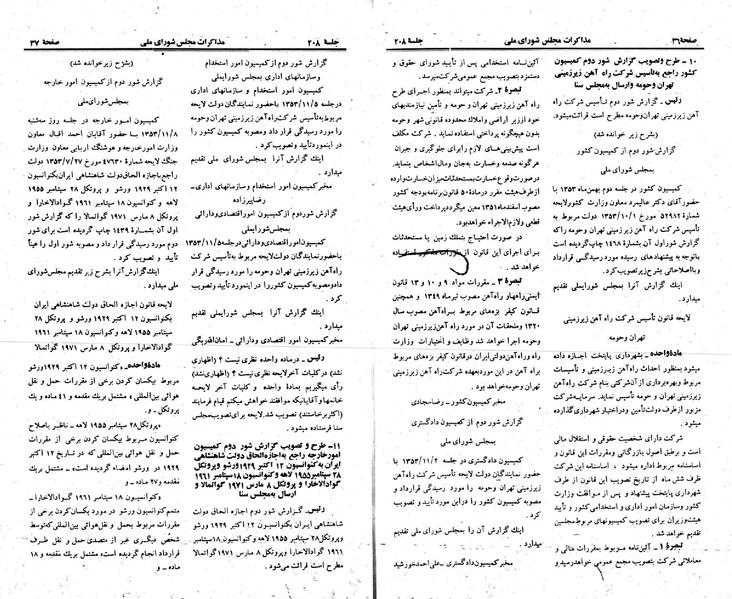 صفحه ۳۶ مذاکرات مجلس شورای ملی جلسه ۲۰۸
۱۰ - طرح و تصویب گزارش شور دوم کمیسیون
کشور راجع به تأسیس شرکت راه آهن زیرزمینی
تهران و حومه و ارسال به مجلس سنا
رئیس - گزارش شور دوم تأسیس شرکت راه
آهن زیرزمینی تهران و حومه مطرح است قرائت میشود.
(بشرح زیر خوانده شد)
گزارش شور دوم از کمیسیون کشور
به مجلس شورای ملی
کمیسیون کشور در جلسه دوم بهمن ماه ۱۳۵۳ با
حضور آقای دکتر عالیمرد معاون وزارت کشور لایحه
شماره ۵۲۹۸۲ مورخ ۱۳۵۳/۱۰/۱ دولت مربوط به
تأسیس شرکت راه آهن زیرزمینی تهران و حومه که
گزارش شور اول آن بشماره ۱۴۶۸ چاپ گردیده است
با توجه به پیشنهاد رسیده مورد رسیدگی قرار داد
و با اصلاحاتی بشرح زیر تصویب کرد.
اینک گزارش آنرا بمجلس شورای ملی تقدیم
میدارد.
لایحه قانون تأسیس شرکت راه آهن زیرزمینی
تهران و حومه
ماده واحده - شهرداری پایتخت اجازه داده
میشود بمنظور احداث راه آهن زیرزمینی و تأسیسات
مربوط و بهره برداری از آن شرکتی بنام شرکت راه آهن
زیرزمینی تهران و حومه تأسیس نماید. سرمایه شرکت
مزبور از طرف دولت تأمین و در اختیار شهرداری گذارده
میشود.
شرکت دارای شخصیت حقوقی و استقلال مالی
است و برطبق اصول بازرگانی و مقررات این قانون و
اساسنامه مربوط اداره میشود، اساسنامه این شرکت
ظرف شش ماه از تاریخ تصویب این قانون از طرف
شهرداری پایتخت پیشنهاد و پس از موافقت وزارت
کشور و سازمان امور اداری و استخدامی کشور و تأیید
هیئت وزیران برای تصویب کمیسیونهای مربوط مجلسین
تقدیم خواهد شد.
تبصره ۱ - آئین نامه مربوط بمقررات مالی و
معاملاتی شرکت بتصویب مجمع عمومی خواهد رسید و
آئین نامه استخدامی پس از تأیید شورای حقوق و
دستمزد بتصویب مجمع عمومی شرکت میرسد.
تبصره ۲ - شرکت میتواند بمنظور اجرای طرح
راه آهن زیرزمینی تهران و حومه و تأمین نیازمندیهای
خود از زیر اراضی و املاک محدوده قانونی شهر و حومه
بدون هیچگونه پرداختی استفاده نماید. شرکت مکلف
است پیش بینی های لازم را برای جلوگیری و جبران
هرگونه صدمه و خسارت به جان و مال اشخاص بنماید.
در صورت وقوع خسارت بمستحدثات میزان خسارت وارده
از طرف هیئت مقرر در ماده ۵۰ قانون برنامه و بودجه کشور
مصوب اسفندماه ۱۳۵۱ معین میگردد پرداخت و رأی هیئت
قطعی و لازم الاجراء خواهد بود.
در صورت احتیاج بتملک زمین یا مستحدثات
برای اجرای این قانون از مقررات مذکور استفاده
خواهد شد.
تبصره ۳ - مقررات مواد ۹ و ۱۰ و ۱۳ قانون
ایمنی راهها و راه آهن مصوب تیرماه ۱۳۴۹ و همچنین
قانون کیفر بزه های مربوط براه آهن مصوب سال
۱۳۲۰ و ملحقات آن در مورد راه آهن زیرزمینی تهران
و حومه اجرا خواهد شد و وظایف و اختیارات وزارت
راه و راه آهن دولتی ایران در قانون کیفر بزه های مربوط
براه آهن در این مورد بعهده شرکت راه آهن زیرزمینی
تهران و حومه خواهد بود.
مخبر کمیسیون کشور - رضا سجادی
گزارش شور دوم از کمیسیون دادگستری
به مجلس شورای ملی
کمیسیون دادگستری در جلسه ۱۳۵۳/۱۱/۲ با
حضور نمایندگان دولت لایحه تأسیس شرکت راه آهن
زیرزمینی تهران و حومه را مورد رسیدگی قرار داد و
مصوبه کمیسیون کشور را در این مورد تصویب کرد.
اینک گزارش آن را بمجلس شورای ملی تقدیم
میدارد.
مخبر کمیسیون دادگستری - علی احمد خورشید
جلسه ۲۰۸ مذاکرات مجلس شورای ملی صفحه ۳۷
گزارش شور دوم از کمیسیون امور استخدام
و سازمانهای اداری بمجلس شورایملی
کمیسیون امور استخدام و سازمانهای اداری
در جلسه ۱۳۵۳/۱۱/۵ با حضور نمایندگان دولت لایحه
مربوط به تأسیس شرکت راه آهن زیرزمینی تهران و حومه
را مورد رسیدگی قرار داد و مصوبه کمیسیون کشور را
در این مورد تأیید و تصویب کرد.
اینک گزارش آنرا بمجلس شورای ملی تقدیم
میدارد.
مخبر کمیسیون امور استخدام و سازمانهای اداری -
رضا پیرزاده
گزارش شور دوم از کمیسیون امور اقتصادی و دارائی
بمجلس شورای ملی
کمیسیون امور اقتصادی و دارائی در جلسه ۱۳۵۳/۱۱/۵
با حضور نمایندگان دولت لایحه مربوط به تأسیس شرکت
راه آهن زیرزمینی تهران و حومه را مورد رسیدگی قرار
داد و مصوبه کمیسیون کشور را در این مورد تأیید و تصویب
کرد.
اینک گزارش آنرا بمجلس شورایملی تقدیم
میدارد.
مخبر کمیسیون امور اقتصادی و دارائی - امان اله ریگی
رئیس - در ماده واحده نظری نیست؟ (اظهاری
نشد) در کلیات آخر لایحه نظری نیست؟ (اظهاری نشد)
رأی میگیریم بماده واحده و کلیات آخر لایحه
خانمها و آقایانیکه موافقند خواهش میکنم قیام فرمایند
(اکثر برخاستند) تصویب شد. لایحه برای تصویب مجلس
سنا فرستاده میشود.
۱۱ - طرح و تصویب گزارش شور دوم کمیسیون
امور خارجه راجع به اجازه الحاق دولت شاهنشاهی
ایران به کنوانسیون ۱۲ اکتبر ۱۹۲۹ ورشو و پروتکل
۲۸ سپتامبر ۱۹۵۵ لاهه و کنوانسیون ۱۸ سپتامبر ۱۹۶۱
گوادالاخارا و پروتکل ۸ مارس ۱۹۷۱ گواتمالا و
ارسال به مجلس سنا
رئیس - گزارش شور دوم اجازه الحاق دولت
شاهنشاهی ایران بکنوانسیون ۱۲ اکتبر ۱۹۲۹ ورشو
و پروتکل ۲۸ سپتامبر ۱۹۵۵ لاهه و کنوانسیون ۱۸ سپتامبر
۱۹۶۱ گوادالاخارا و پروتکل ۸ مارس ۱۹۷۱ گواتمالا
مطرح است قرائت می شود.
(بشرح زیر خوانده شد)
گزارش شور دوم از کمیسیون امور خارجه
بمجلس شورای ملی
کمیسیون امور خارجه در جلسه روز سه شنبه
۱۳۵۳/۱۱/۸ با حضور آقایان احمد اقبال معاون
وزارت امور خارجه و هوشنگ اربابی معاون وزارت
جنگ لایحه شماره ۴۷۳۰ مورخ ۱۳۵۳/۷/۲۷ دولت
راجع به اجازه الحاق دولت شاهنشاهی ایران بکنوانسیون
۱۲ اکتبر ۱۹۲۹ ورشو و پروتکل ۲۸ سپتامبر ۱۹۵۵
لاهه و کنوانسیون ۱۸ سپتامبر ۱۹۶۱ گوادالاخارا و
پروتکل ۸ مارس ۱۹۷۱ گواتمالا را که گزارش شور
اول آن بشماره ۱۴۳۹ چاپ گردیده است برای شور
دوم مورد رسیدگی قرار داد و مصوبه شور اول را عیناً
تأیید و تصویب کرد.
اینک گزارش آنرا بشرح زیر تقدیم مجلس شورای
ملی میدارد.
لایحه قانون اجازه الحاق دولت شاهنشاهی ایران
بکنوانسیون ۱۲ اکتبر ۱۹۲۹ ورشو و پروتکل ۲۸
سپتامبر ۱۹۵۵ لاهه و کنوانسیون ۱۸ سپتامبر ۱۹۶۱
گوادالاخارا و پروتکل ۸ مارس ۱۹۷۱ گواتمالا
ماده واحده - کنوانسیون ۱۲ اکتبر ۱۹۲۹ ورشو
مربوط بیکسان کردن برخی از مقررات حمل و نقل
هوائی بین المللی، مشتمل بریک مقدمه و ۴۱ ماده و یک
پروتکل - و
پروتکل ۲۸ سپتامبر ۱۹۵۵ لاهه - ناظر باصلاح
کنوانسیون مربوط بیکسان کردن برخی از مقررات حمل
و نقل هوائی بین المللی که در تاریخ ۱۲ اکتبر
۱۹۲۹ در ورشو امضاء گردیده است، مشتمل بریک
مقدمه و ۲۷ ماده -
و کنوانسیون ۱۸ سپتامبر ۱۹۶۱ گوادالاخارا -
متمم کنوانسیون ورشو در مورد یکسان کردن برخی از
مقررات مربوط بحمل و نقل هوائی بین المللی که توسط
شخص دیگری غیر از متصدی حمل و نقل طرف
قرارداد انجام گردیده است، مشتمل بریک مقدمه و ۱۸
ماده - و